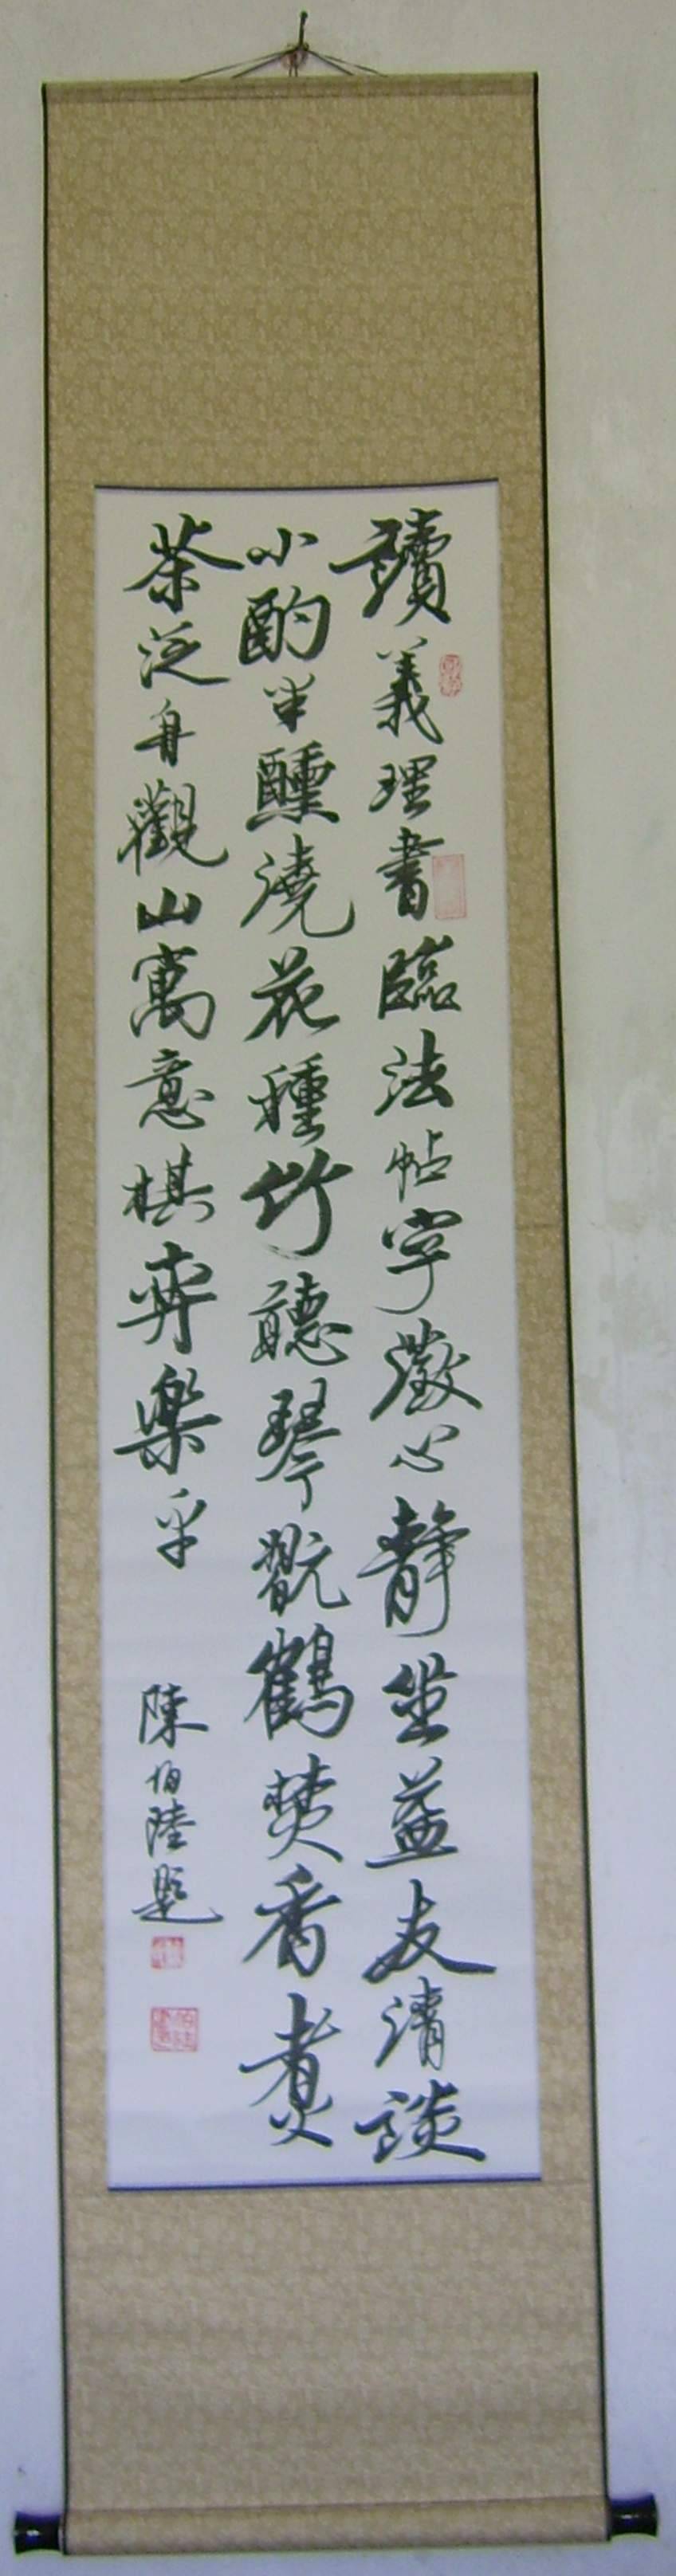 讀義理書臨法帖字澂心靜坐益友清談
小酌半醺澆花種竹聽琴翫鶴焚香煮
茶泛舟觀山寓意棋弈樂乎
陳伯陸題